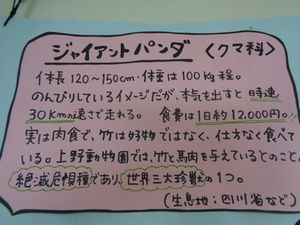 ジャイアントパンダ 〈クマ科〉
体長120〜150cm・体重は100Kg程。
のんびりしているイメージだが、本気を出すと時速
30Kmの速さで走れる。 食費は1日約12,000円。!!
実は肉食で、竹は好物ではなく、仕方なく食べて
いる。上野動物園では、竹と馬肉を与えているとのこと。
絶滅危惧種であり、世界三大珍獣の1つ。
(生息地：四川省など)